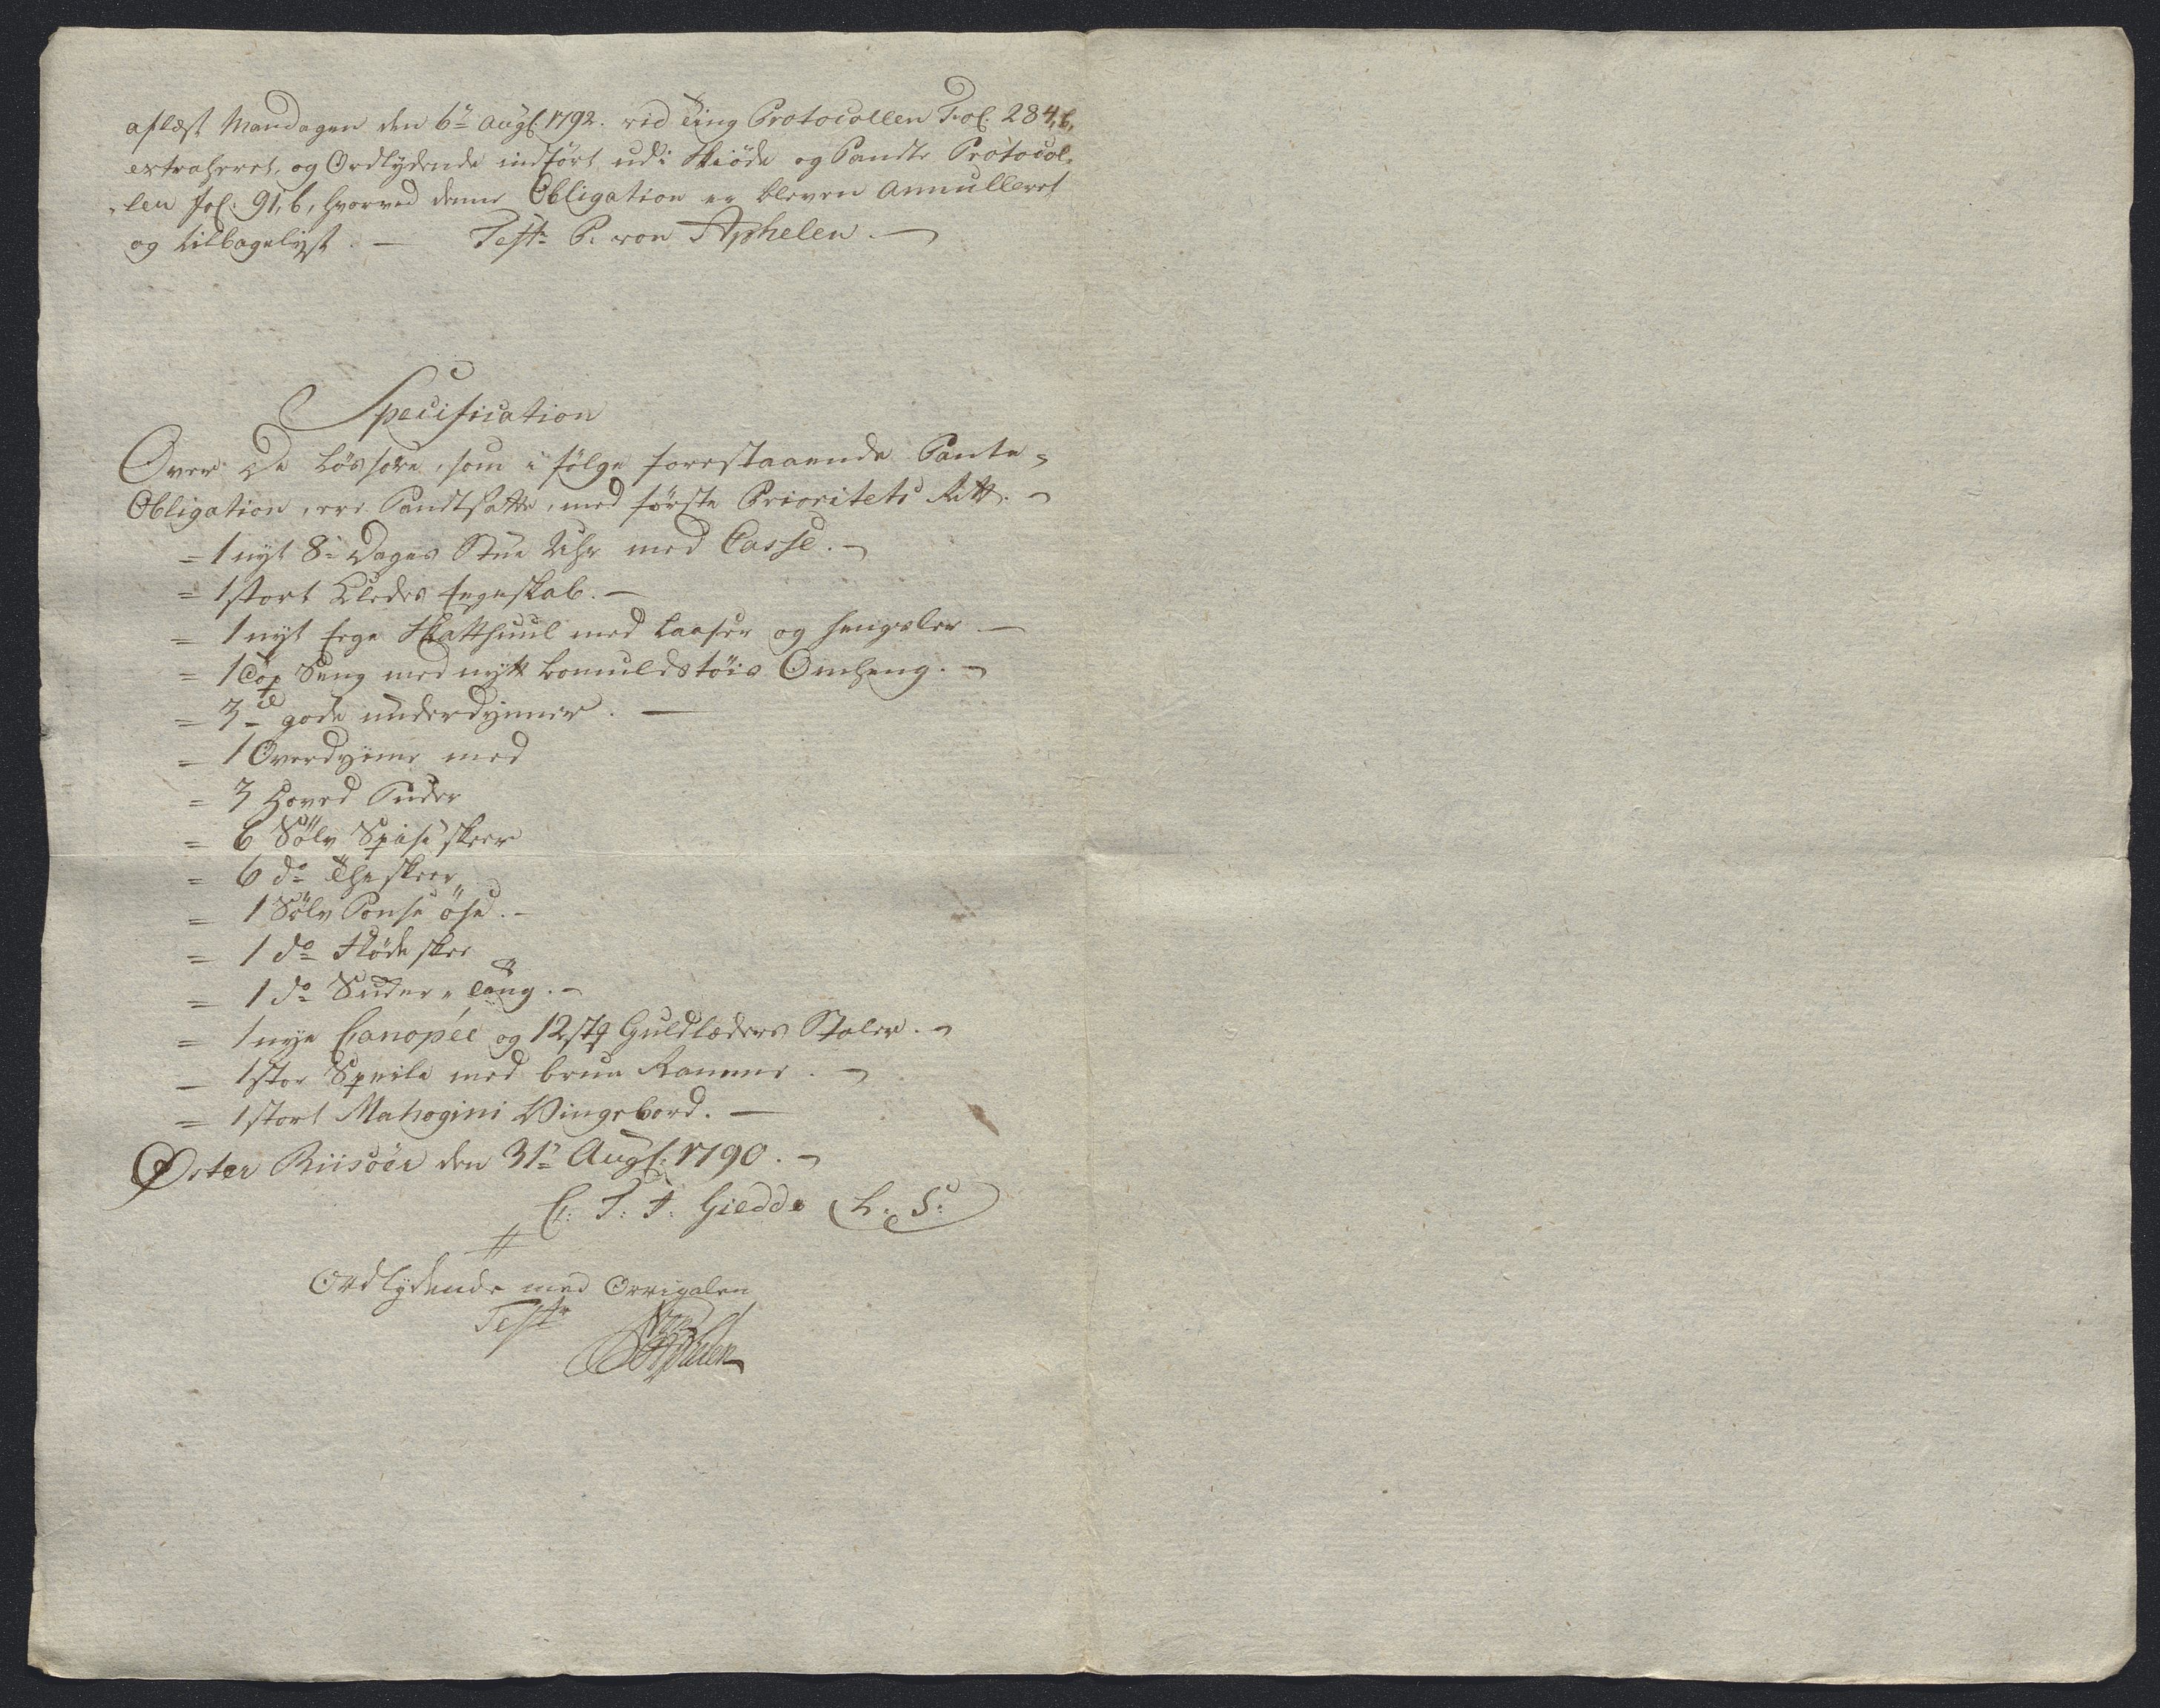 aflæst Mandagen den 6te Augs: 1792. ved Ting Protocollen Fol: 284,b,
extraheret, og Ordlydende indført udi Skiøde og Pandte Protocol-
len fol: 91,b, hvorved denne Obligation er bleven annulleret
og tilbagelyst. — Test: P. von Aphelen. —
Specification
Over De Løsøre, som i følge forestaaende Pante-
Obligation, ere Pandtsatte, med første Prioritets Rett. -
= 1 nyt 8te Dages Stue Uhr med Casse. -
= 1 stort Kledes Egeskab. —
= 1 nyt Ege med Laaser og hengsler —
= 1 Seng med nytt bomulds tøis Omheng. -
= 3de gode underdyner. —
= 1 Overdyne med
= 3 Hoved Puder
= 6 Sølv Spise skeer
= 6 do Theskeer
= 1 Sølv Ponse øse. -
= 1 do Fløde skee
= 1 do Suker-Tang. -
= 1 nye Canopée og 12 stk Guldlæders Stoler. -
= 1 stor Speile med brun Ramme. -
= 1 stort Mahogini Vingebord. —
Øster Riisöer den 31te Augs: 1790. -
C: T: F: Giedde (L. S:)
Ordlydende med Orrigalen
Test:
Aphelen